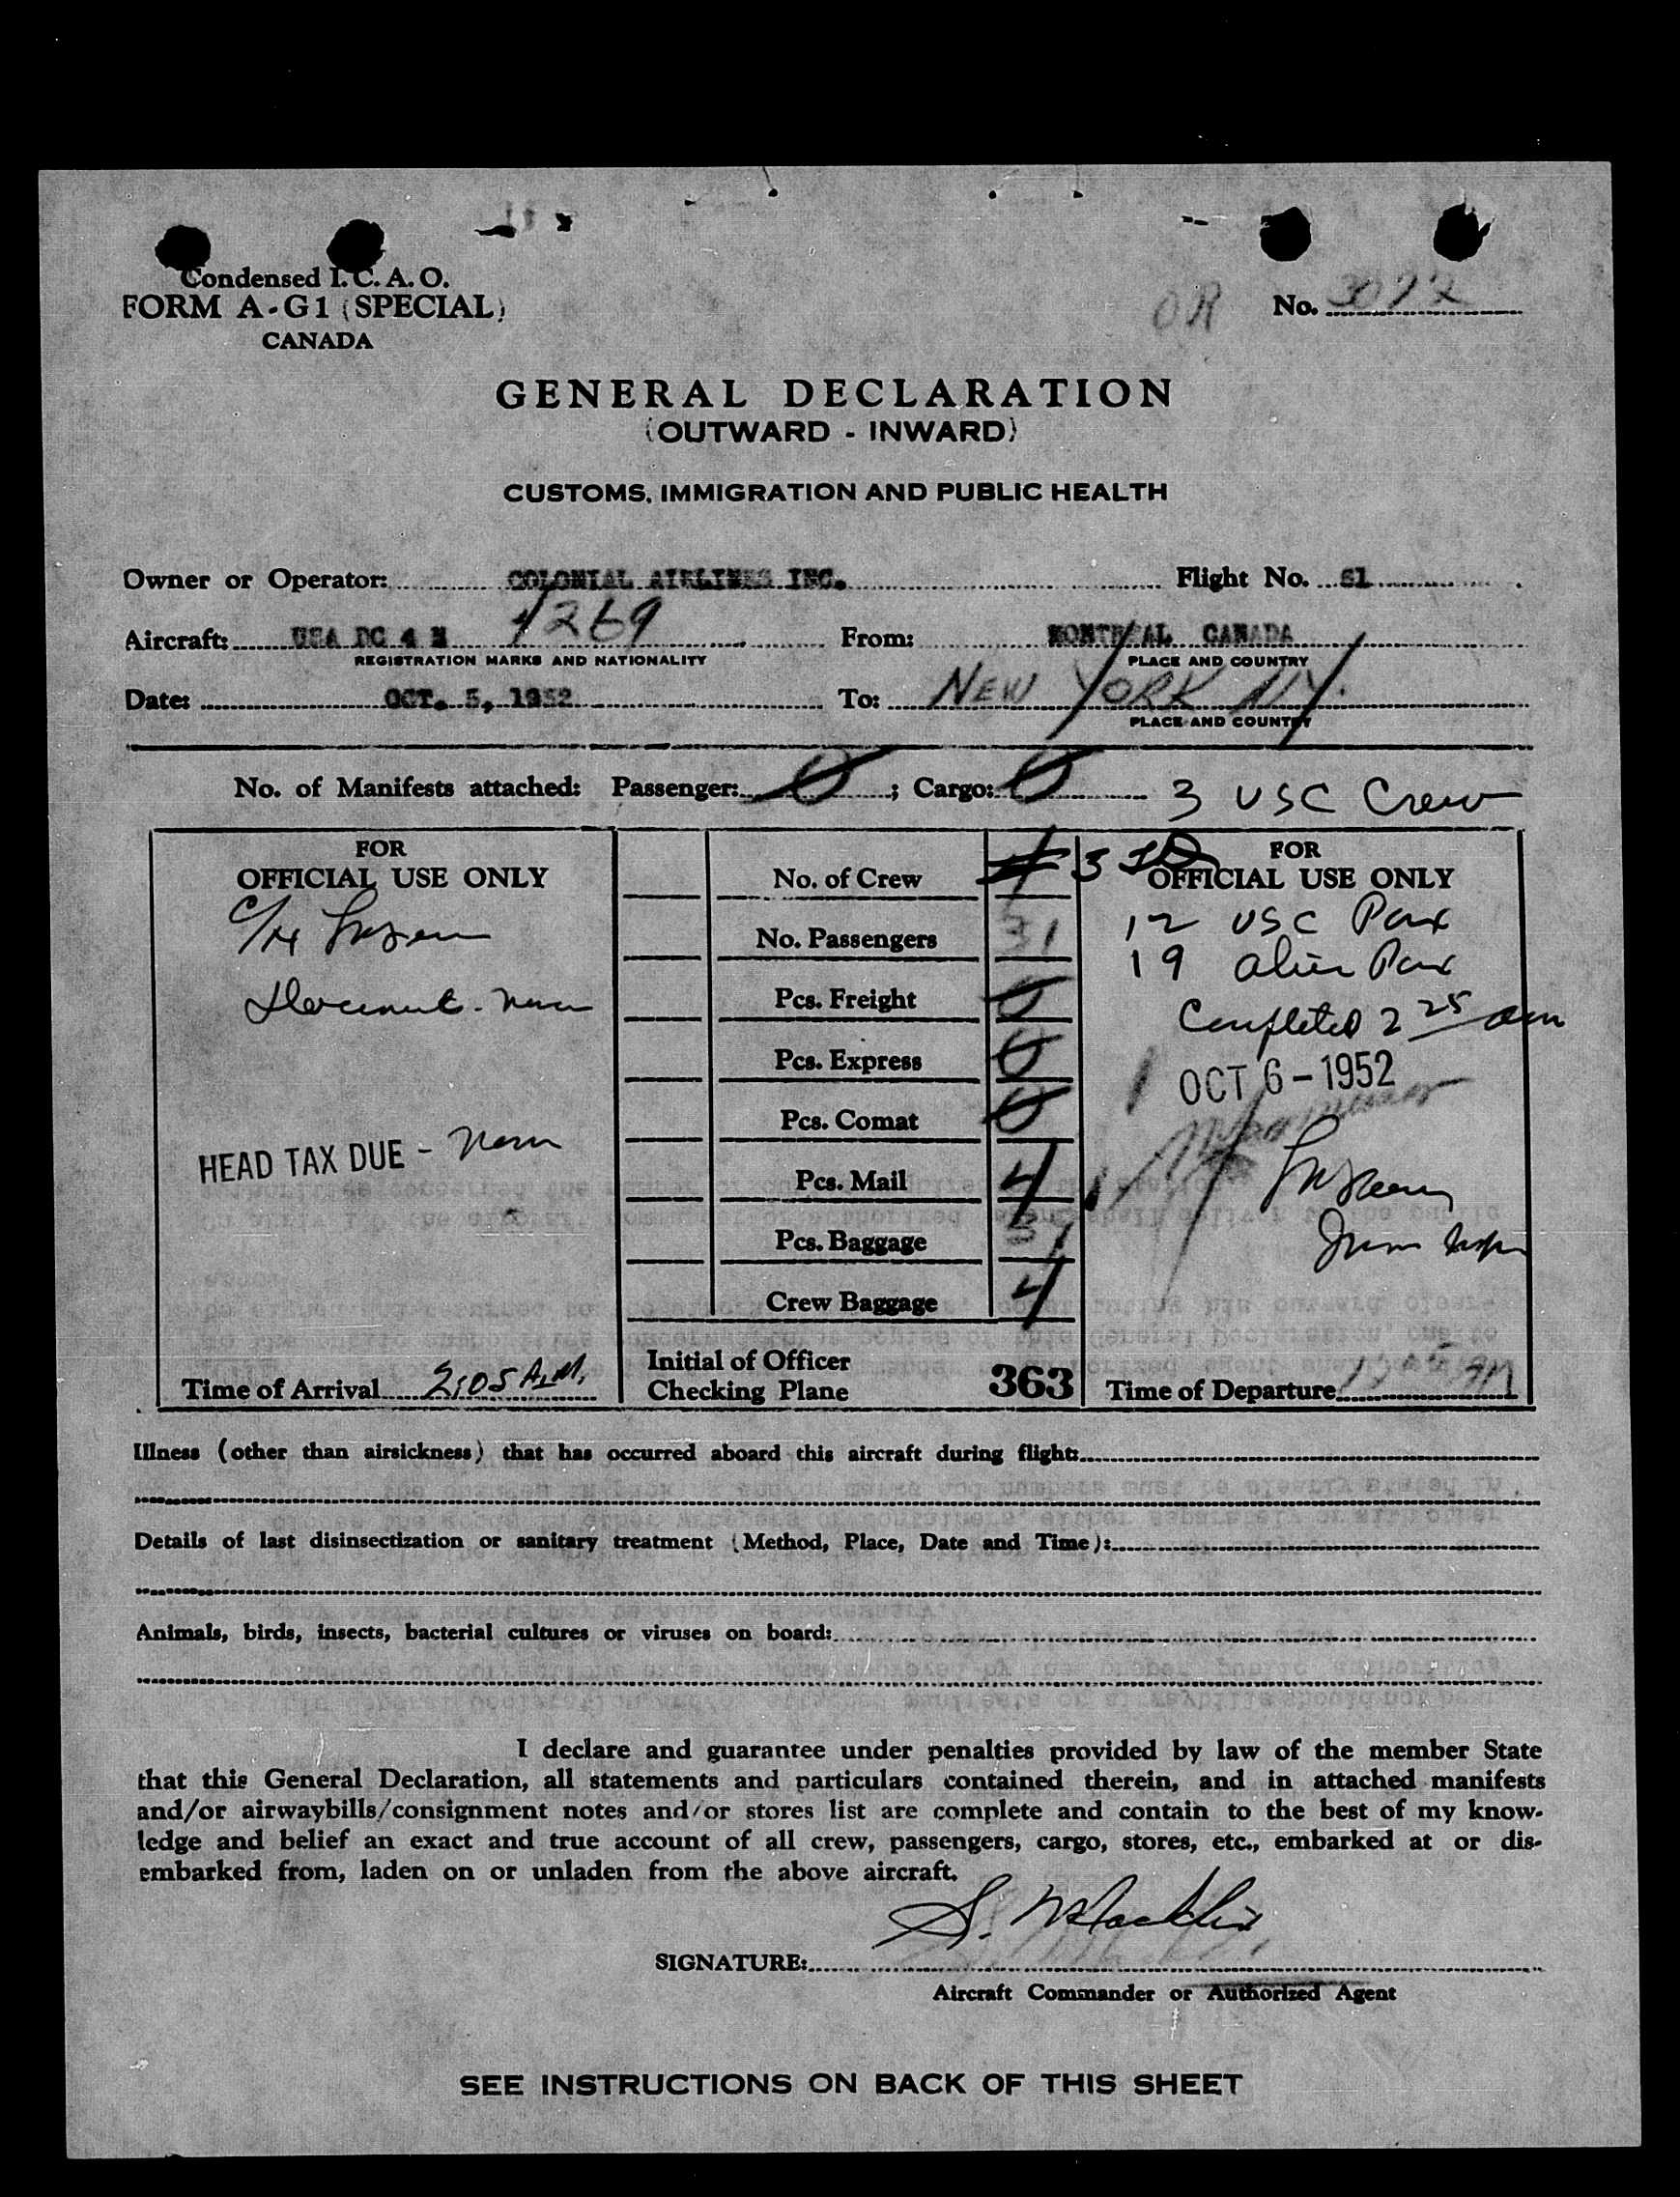 Condensed I. C. A. O.
FORM A-G1 (SPECIAL)
CANADA
OR No. 3072
GENERAL DECLARATION
(OUTWARD - INWARD)
CUSTOMS, IMMIGRATION AND PUBLIC HEALTH
Owner or Operator: COLONIAL AIRLINES INC. Flight No. S1
Aircraft: USA DC 4 N 1269 From: MONTREAL CANADA
REGISTRATION MARKS AND NATIONALITY PLACE AND COUNTRY
Date: OCT. 5, 1952 To: NEW YORK N.Y.
PLACE AND COUNTRY
No. of Manifests attached: Passenger: 0 ; Cargo: 0 3 USC Crew
FOR
OFFICIAL USE ONLY
HEAD TAX DUE - None
Time of Arrival 2:05 A.M.
No. of Crew 4 3
No. Passengers 31
Pcs. Freight 0
Pcs. Express 0
Pcs. Comat 0
Pcs. Mail 4
Pcs. Baggage
Crew Baggage 4
Initial of Officer
Checking Plane 363
FOR
OFFICIAL USE ONLY
12 USC Pax
19 alien Pax
Completed 2 25 am
OCT 6-1952
Imm Insp
Time of Departure
Illness (other than airsickness) that has occurred aboard this aircraft during flight:
Details of last disinsectization or sanitary treatment (Method, Place, Date and Time):
Animals, birds, insects, bacterial cultures or viruses on board:
I declare and guarantee under penalties provided by law of the member State
that this General Declaration, all statements and particulars contained therein, and in attached manifests
and/or airwaybills/consignment notes and/or stores list are complete and contain to the best of my know-
ledge and belief an exact and true account of all crew, passengers, cargo, stores, etc., embarked at or dis-
embarked from, laden on or unladen from the above aircraft.
S. Macklin
SIGNATURE:
Aircraft Commander or Authorized Agent
SEE INSTRUCTIONS ON BACK OF THIS SHEET